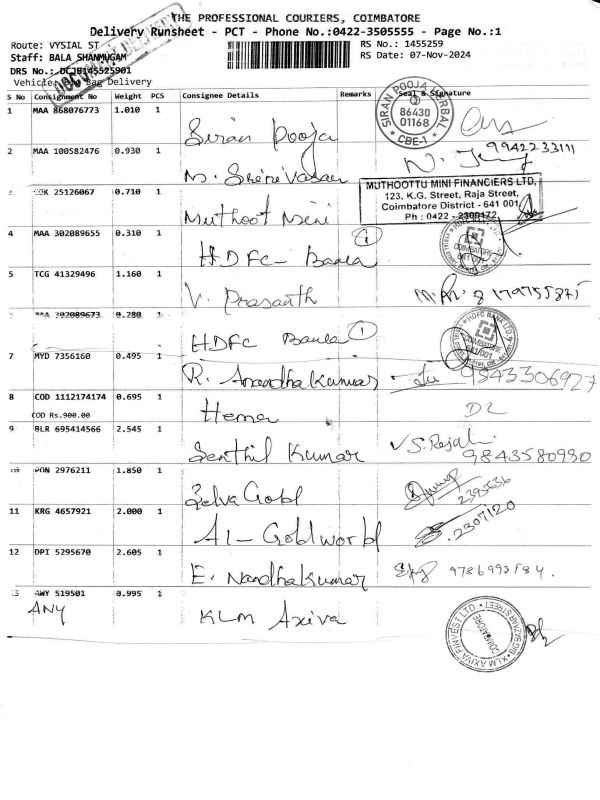 THE PROFESSIONAL COURIERS, COIMBATORE
Delivery Runsheet - PCT - Phone No.:0422-3505555 - Page No.:1
Route: VYSIAL ST
RS No.: 1455259
Staff: BALA SHANMUGAM
RS Date: 07-Nov-2024
DRS No.: DCJB145525901
Delivery
S No Consignment No Weight PCS Consignee Details Remarks Seal & Signature
1 MAA 868076773 1.010 1 Siran Pooja
SIRAN POOJA HERBAL
86430
01168
CBE-1
2 MAA 100582476 0.930 1 M. Srinivasan 9942233111
25126067 0.710 1 Muthoot Mini
MUTHOOTTU MINI FINANCIERS LTD,
123, K.G. Street, Raja Street,
Coimbatore District - 641 001
Ph : 0422 - 2300172
4 MAA 302089655 0.310 1 HDFC - Bank 1
5 TCG 41329496 1.160 1 V. Prasanth
MAA 302089673 0.280 1 HDFC Bank 1
HDFC BANK LTD
COIMBATORE
7 MYD 7356160 0.495 1 R. Anandhakumar 9543306927
8 COD 1112174174 0.695 1 Hema
COD Rs.900.00
9 BLR 695414566 2.545 1 Senthil Kumar 9843580930
PON 2976211 1.850 1 Selva Gold
11 KRG 4657921 2.000 1 A1 - Goldworld 2307120
12 DPI 5295670 2.605 1 E. Nandhakumar
AWY 519501 0.995 1 KLM Axiva
ANY
KLM AXIVA FINVEST LTD
COIMBATORE